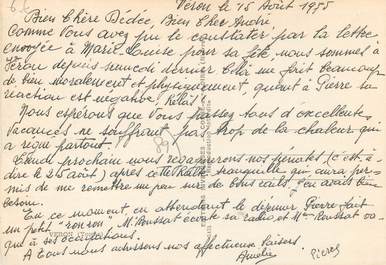 Véron le 15 Août 1955
Bien Chère Dédée, Bien Cher André
Comme vous avez pu le constater par la lettre
envoyée à Marie-Louise pour sa fête, nous sommes à
Véron depuis mercredi dernier. Celà me fait beaucoup
de bien moralement et physiquement, quant à Pierre sa
réaction est négative, hélas!
Nous espérons que vous passez tous d'excellentes
vacances ne souffrant pas trop de la chaleur qui
a régné partout.
Jeudi prochain nous regagnerons nos pénates (c'est-à-
dire le 25 août) après cette halte tranquille qui aura per-
mis de me remettre un peu sur de bons rails. J'en avais bien
besoin.
En ce moment, en attendant le déjeuner Pierre fait
un petit "ronron", M. Poussat écoute sa radio et Mme Poussat va-
que à ses occupations.
A tous nous adressons nos affectueux baisers.
Amélie Pierre
VERON